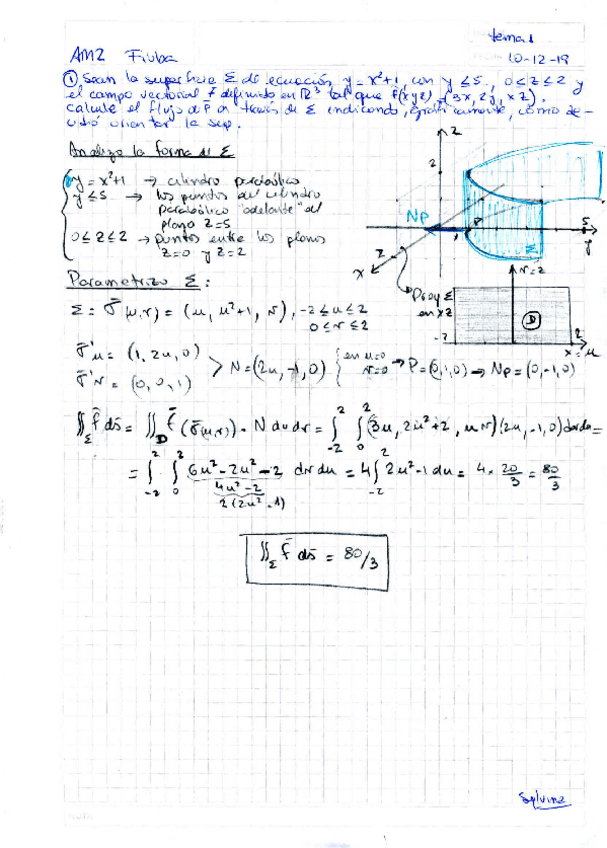 tema 1
AM2 Fiuba
10-12-19
① Sean la superficie Σ de ecuación y = x²+1, con y ≤ 5, 0 ≤ z ≤ 2 y
el campo vectorial f̄ definido en ℝ³ tal que f̄(xyz) = (3x, 2y, xz).
calcule el flujo de f̄ a través de Σ indicando, gráficamente, cómo de-
cidió orientar la sup.
Analizo la forma de Σ
y = x²+1 → cilindro parabólico
y ≤ 5 → los puntos del cilindro
parabólico "adelante" del
plano z=5
0 ≤ z ≤ 2 → puntos entre los planos
z=0 y z=2
z
2
Np
P
1
5
y
Σ
2
x
Proy Σ
en xz
v=2
D
-2
2
x=u
Parametrizo Σ:
Σ = σ̄(u,v) = (u, u²+1, v), -2 ≤ u ≤ 2
0 ≤ v ≤ 2
σ̄'u = (1, 2u, 0)
σ̄'v = (0, 0, 1)
> N = (2u, -1, 0) { en u=0 v=0 → P = (0,1,0) → Np = (0,-1,0)
∬_Σ f̄ ds̄ = ∬_D f̄(σ̄(u,v)) · N du dv = ∫_{-2}^{2} ∫_0^2 (3u, 2u²+2, uv)(2u, -1, 0) dv du =
= ∫_{-2}^{2} ∫_0^2 6u² - 2u² - 2 dv du = 4 ∫_{-2}^{2} 2u² - 1 du = 4 × 20/3 = 80/3
4u² - 2
2(2u² - 1)
∬_Σ f̄ ds̄ = 80/3
Sylvina